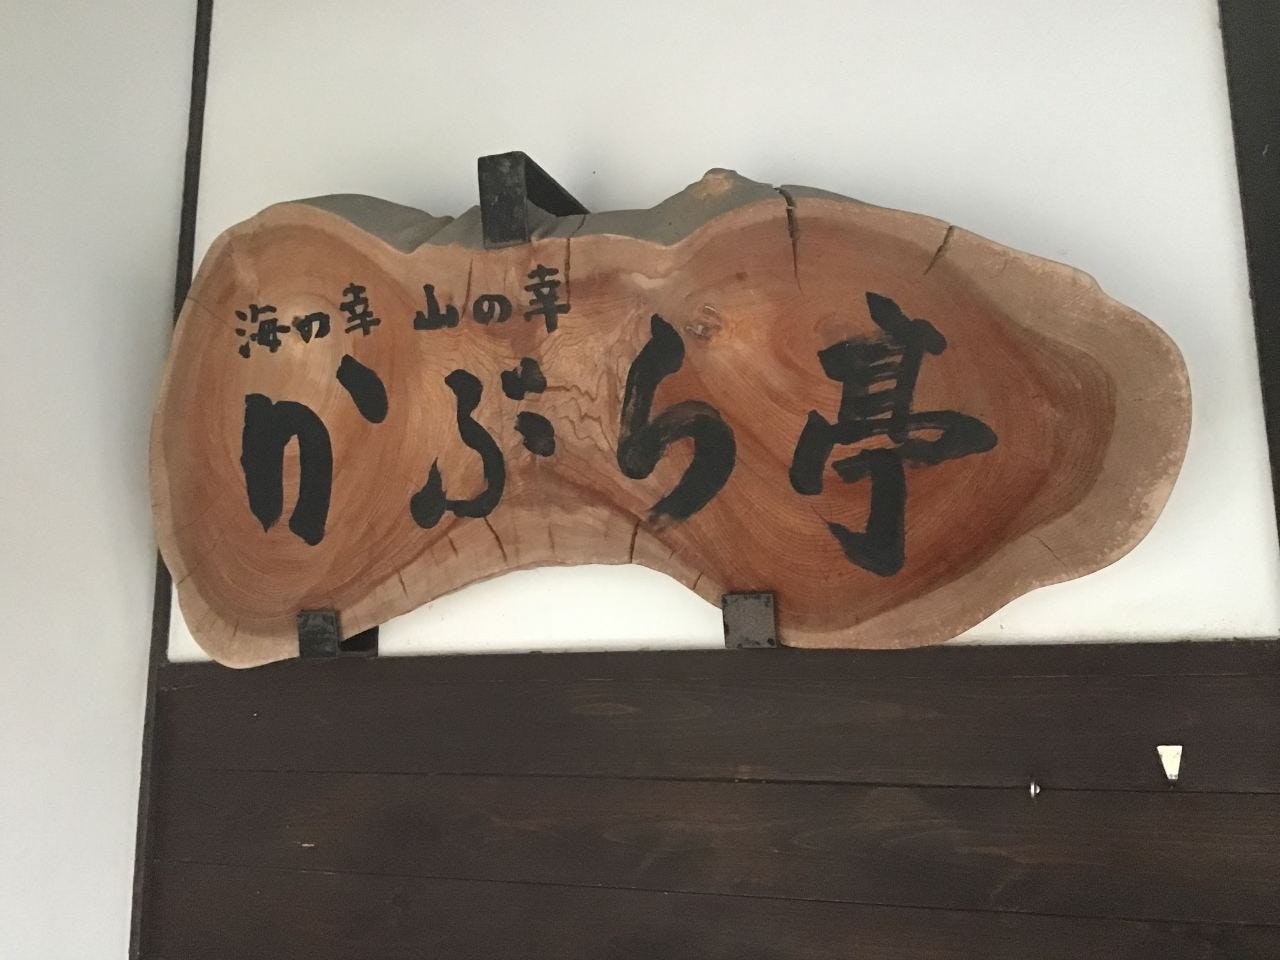 海の幸 山の幸
かぶら亭